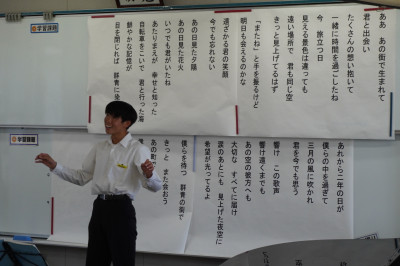 ああ あの街で生まれて
君と出会い
たくさんの想い抱いて
一緒に時間を過ごしたね
今 旅立つ日
見える景色は違っても
遠い場所で 君も同じ空
きっと見上げてるはず
「またね」と手を振るけど
明日も会えるのかな
遠ざかる君の笑顔
今でも忘れない
あの日見た夕陽
あの日見た花火
いつでも君がいたね
あたりまえが 幸せと知った
自転車をこいで 君と行った
鮮やかな記憶が
目を閉じれば 群青に染
あれから二年の日が
僕らの中を過ぎて
三月の風に吹かれ
君を今でも思う
響け この歌声
響け 遠くまでも
あの空の彼方へも
大切な すべてに届け
涙のあとにも 見上げた夜空に
希望が光ってるよ
僕らを待つ 群青の街で
きっと また会おう
あの町で
学習課題
学習課題